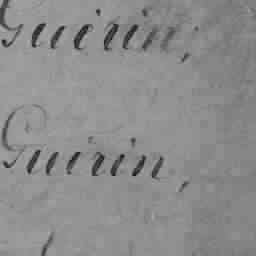 Guirin,
Guirin,